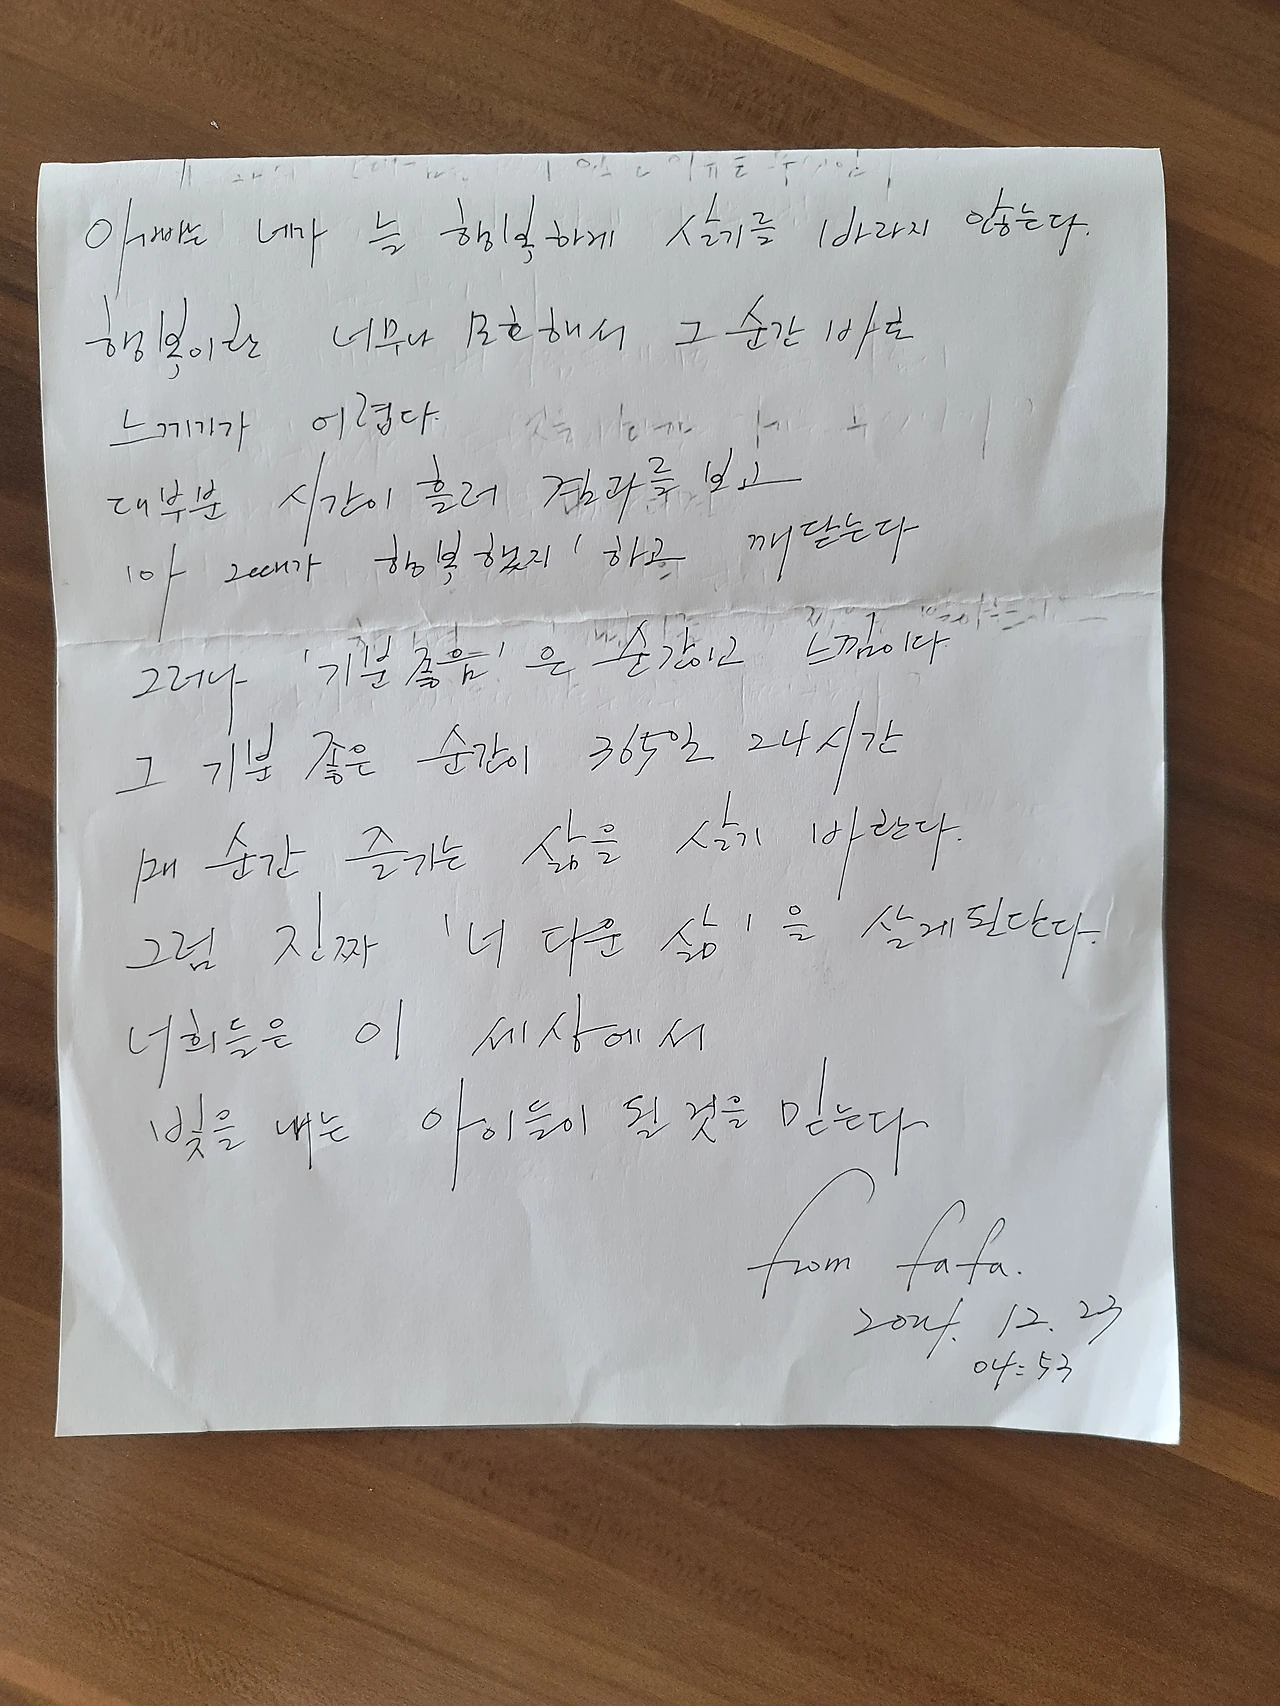 아빠는 네가 늘 행복하게 살기를 바라지 않는다.
행복이란 너무나 모호해서 그 순간 바로
느끼기가 어렵다.
대부분 시간이 흘러 결과를 보고
'아 그때가 행복했지' 하고 깨닫는다
그러나 '기분좋음'은 순간이고 느낌이다.
그 기분 좋은 순간이 365일 24시간
매 순간 즐기는 삶을 살기 바란다.
그럼 진짜 '너 다운 삶'을 살게된단다.
너희들은 이 세상에서
빛을 내는 아이들이 될 것을 믿는다
from fafa.
2024. 12. 23
04:53